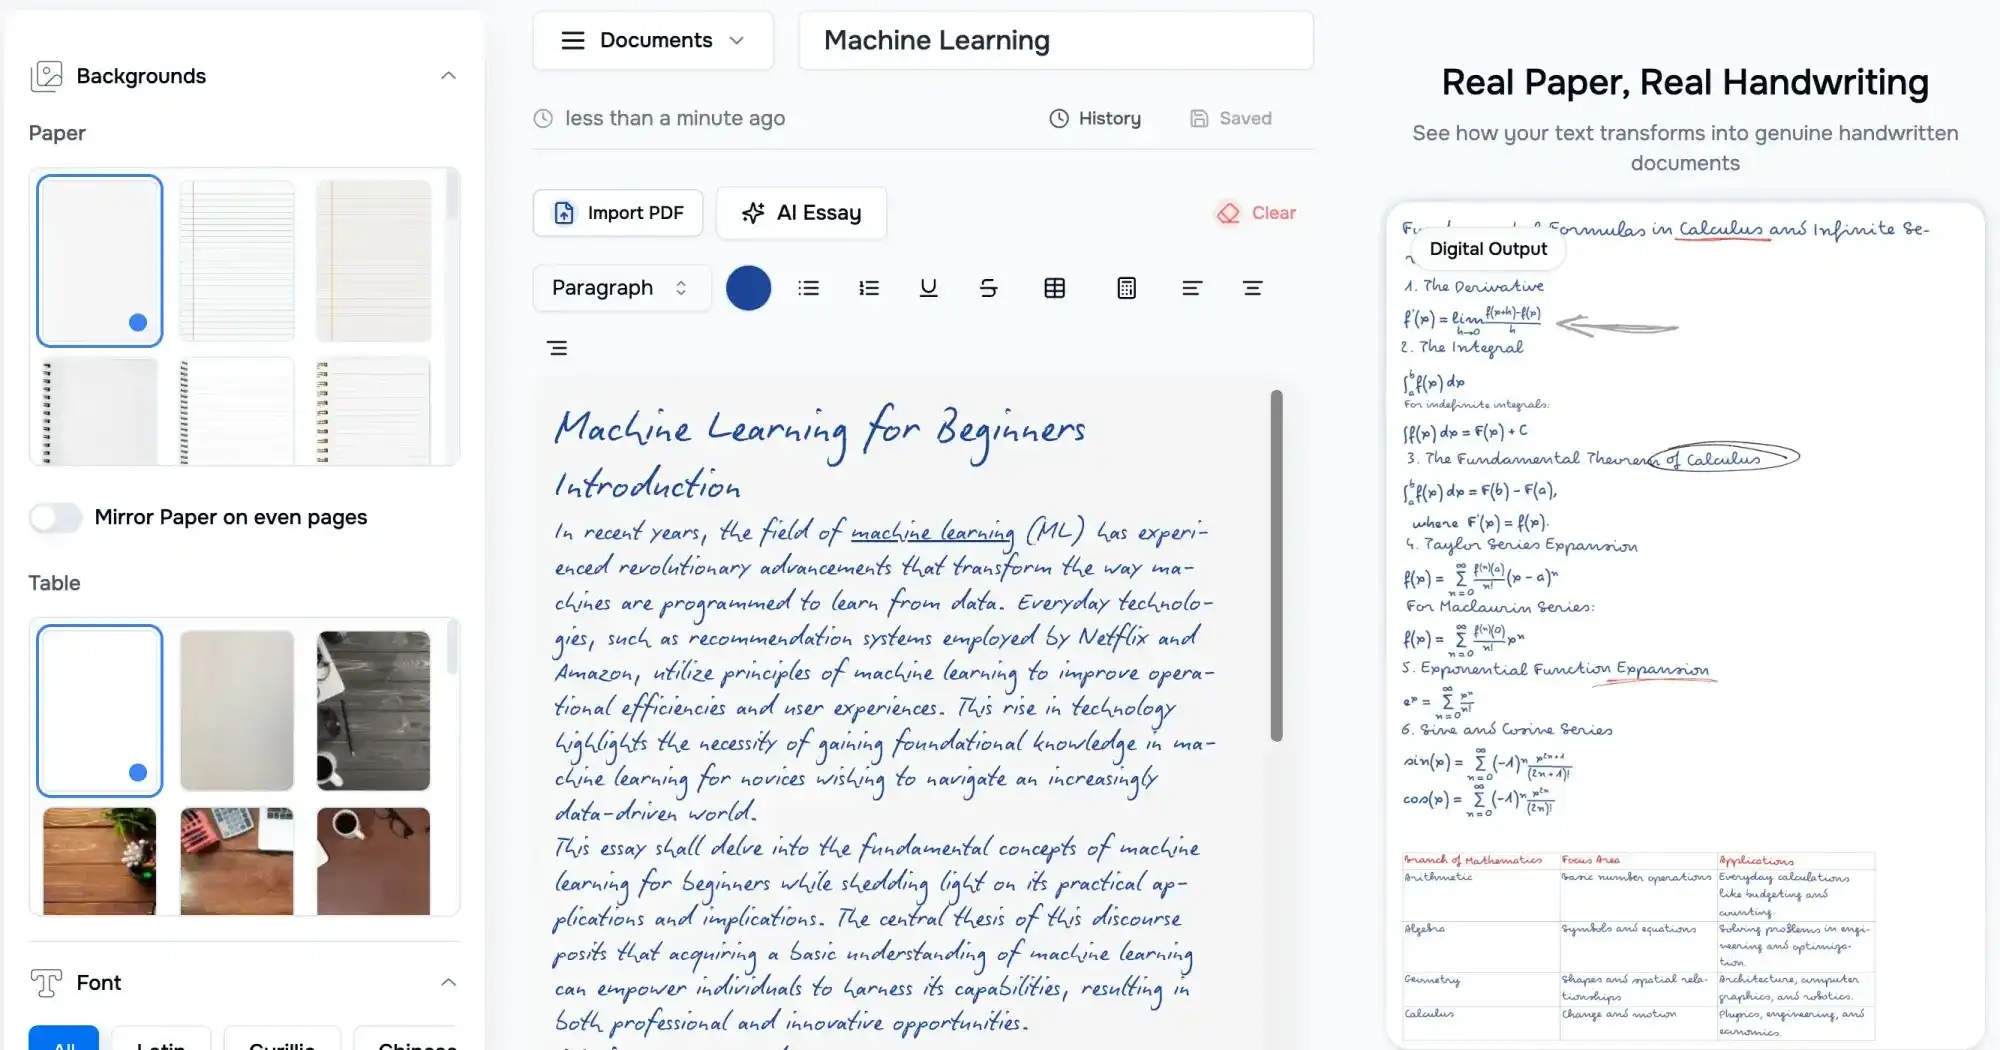 Backgrounds
Paper
Mirror Paper on even pages
Table
Font
All
Latin
Cyrillic
Chinese
Documents
Machine Learning
less than a minute ago
History
Saved
Import PDF
AI Essay
Clear
Paragraph
Machine Learning for Beginners
Introduction
In recent years, the field of machine learning (ML) has experi-
enced revolutionary advancements that transform the way ma-
chines are programmed to learn from data. Everyday technolo-
gies, such as recommendation systems employed by Netflix and
Amazon, utilize principles of machine learning to improve opera-
tional efficiencies and user experiences. This rise in technology
highlights the necessity of gaining foundational knowledge in ma-
chine learning for novices wishing to navigate an increasingly
data-driven world.
This essay shall delve into the fundamental concepts of machine
learning for beginners while shedding light on its practical ap-
plications and implications. The central thesis of this discourse
posits that acquiring a basic understanding of machine learning
can empower individuals to harness its capabilities, resulting in
both professional and innovative opportunities.
Real Paper, Real Handwriting
See how your text transforms into genuine handwritten
documents
Formulas in Calculus and Infinite Se-
Digital Output
1. The Derivative
f'(x) = lim h→0 f(x+h)-f(x) / h
2. The Integral
∫_a^b f(x) dx
For indefinite integrals:
∫f(x) dx = F(x) + C
3. The Fundamental Theorem of Calculus
∫_a^b f(x) dx = F(b) - F(a),
where F'(x) = f(x).
4. Taylor Series Expansion
f(x) = ∑_{n=0}^∞ f(n)(a)/n! (x - a)^n
For Maclaurin Series:
f(x) = ∑_{n=0}^∞ f(n)(0)/n! x^n
5. Exponential Function Expansion
e^x = ∑_{n=0}^∞ x^n/n!
6. Sine and Cosine Series
sin(x) = ∑_{n=0}^∞ (-1)^n x^{2n+1}/(2n+1)!
cos(x) = ∑_{n=0}^∞ (-1)^n x^{2n}/(2n)!
Branch of Mathematics Focus Area Applications
Arithmetic Basic number operations Everyday calculations
like budgeting and
counting.
Algebra Symbols and equations Solving problems in engi-
neering and optimiza-
tion.
Geometry Shapes and spatial rela- Architecture, computer
tionships graphics, and robotics.
Calculus Change and motion Physics, engineering, and
economics.